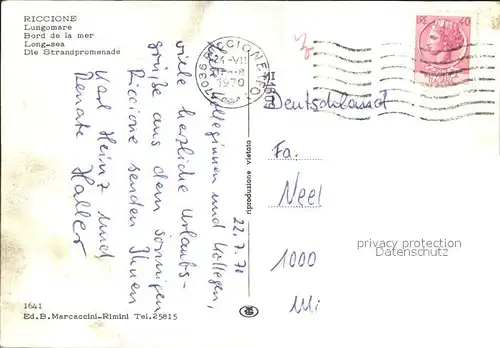 RICCIONE
Lungomare
Bord de la mer
Long-sea
Die Strandpromenade
22.7.70
Kolleginnen und Kollegen,
viele herzliche Urlaubs-
grüße aus dem sonnigen
Riccione senden Ihnen
Karl Heinz und
Renate Haller
47036 RICCIONE (FO)
24-VII
1970
40
Deutschland
Fa.
Neel
1000
privacy protection
Datenschutz
riproduzione vietata
1641
Ed.B.Marcaccini-Rimini Tel.25815